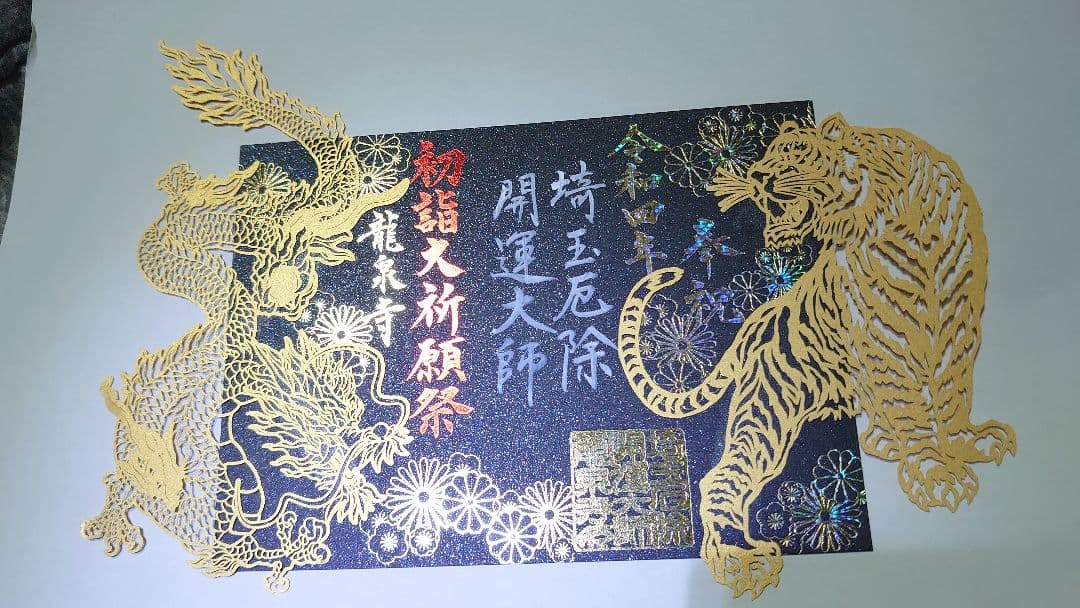 奉拝
令和四年
埼玉厄除
開運大師
初詣大祈願祭
龍泉寺